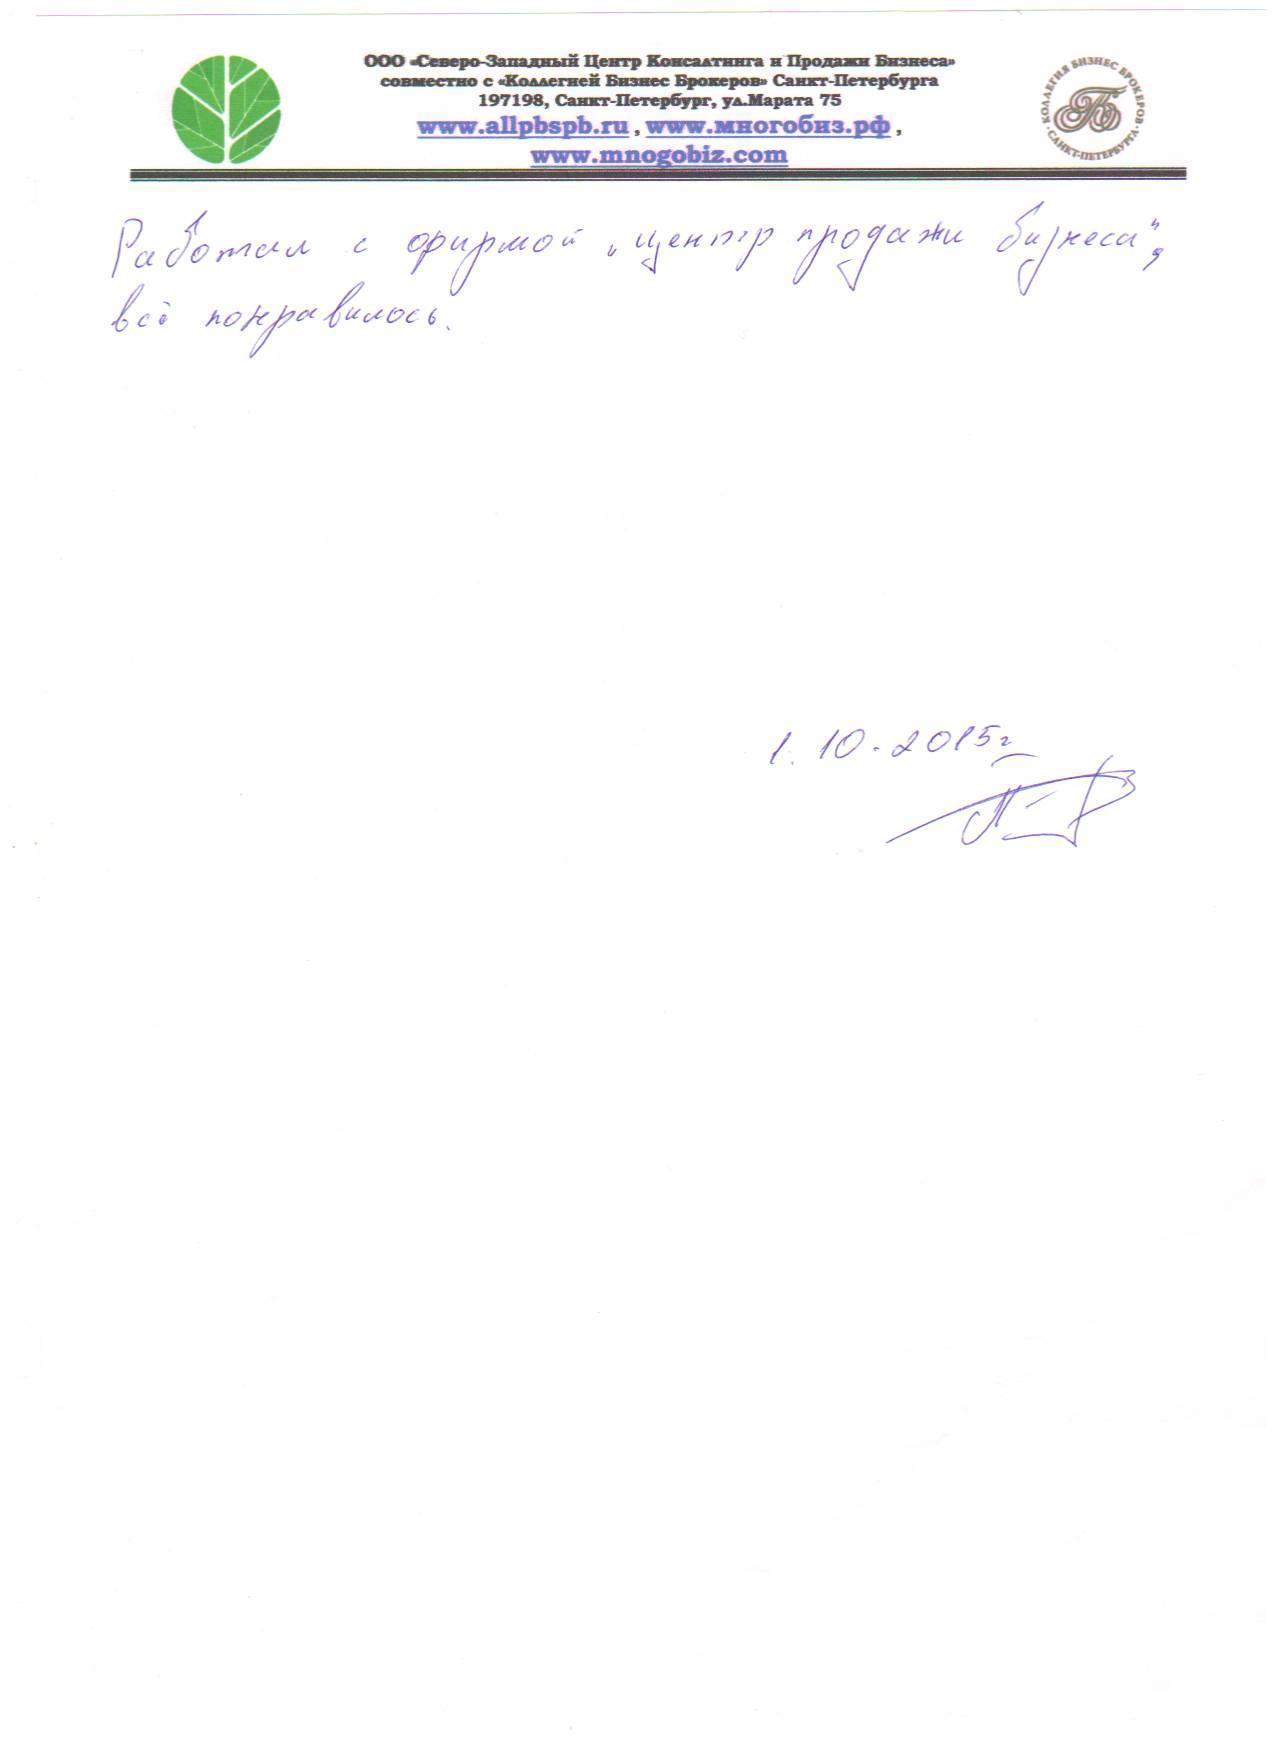 ООО «Северо-Западный Центр Консалтинга и Продажи Бизнеса»
совместно с «Коллегией Бизнес Брокеров» Санкт-Петербурга
197198, Санкт-Петербург, ул.Марата 75
www.allpbspb.ru , www.многобиз.рф ,
www.mnogobiz.com
КОЛЛЕГИЯ БИЗНЕС БРОКЕРОВ
САНКТ-ПЕТЕРБУРГА
Работал с фирмой „центр продажи бизнеса",
всё понравилось.
1.10.2015г